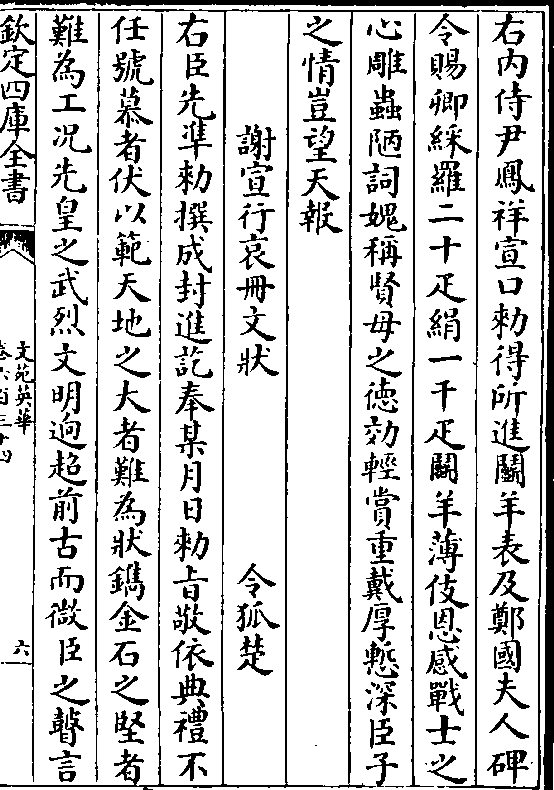 右内侍尹鳳祥宣口勅得所進鬭羊表及鄭國夫人碑
令賜卿綵羅二十疋絹一千疋鬭羊薄伎恩感戰士之
心雕蟲陋詞媿稱賢母之徳効輕賞重戴厚慙深臣子
之情豈望天報
謝宣行哀冊文狀 令狐楚
右臣先凖勅撰成封進訖奉某月日勅㫖敬依典禮不
任號慕者伏以範天地之大者難為狀鐫金石之堅者
難為工况先皇之武烈文明逈超前古而微臣之瞽言
欽定四庫全書
文苑英華
卷六百三十四
六